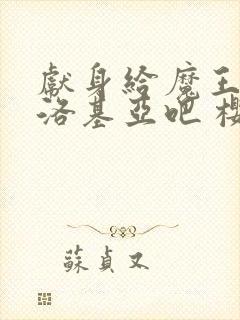 獻身給魔王
洛基亞吧 櫻
蘇貞又